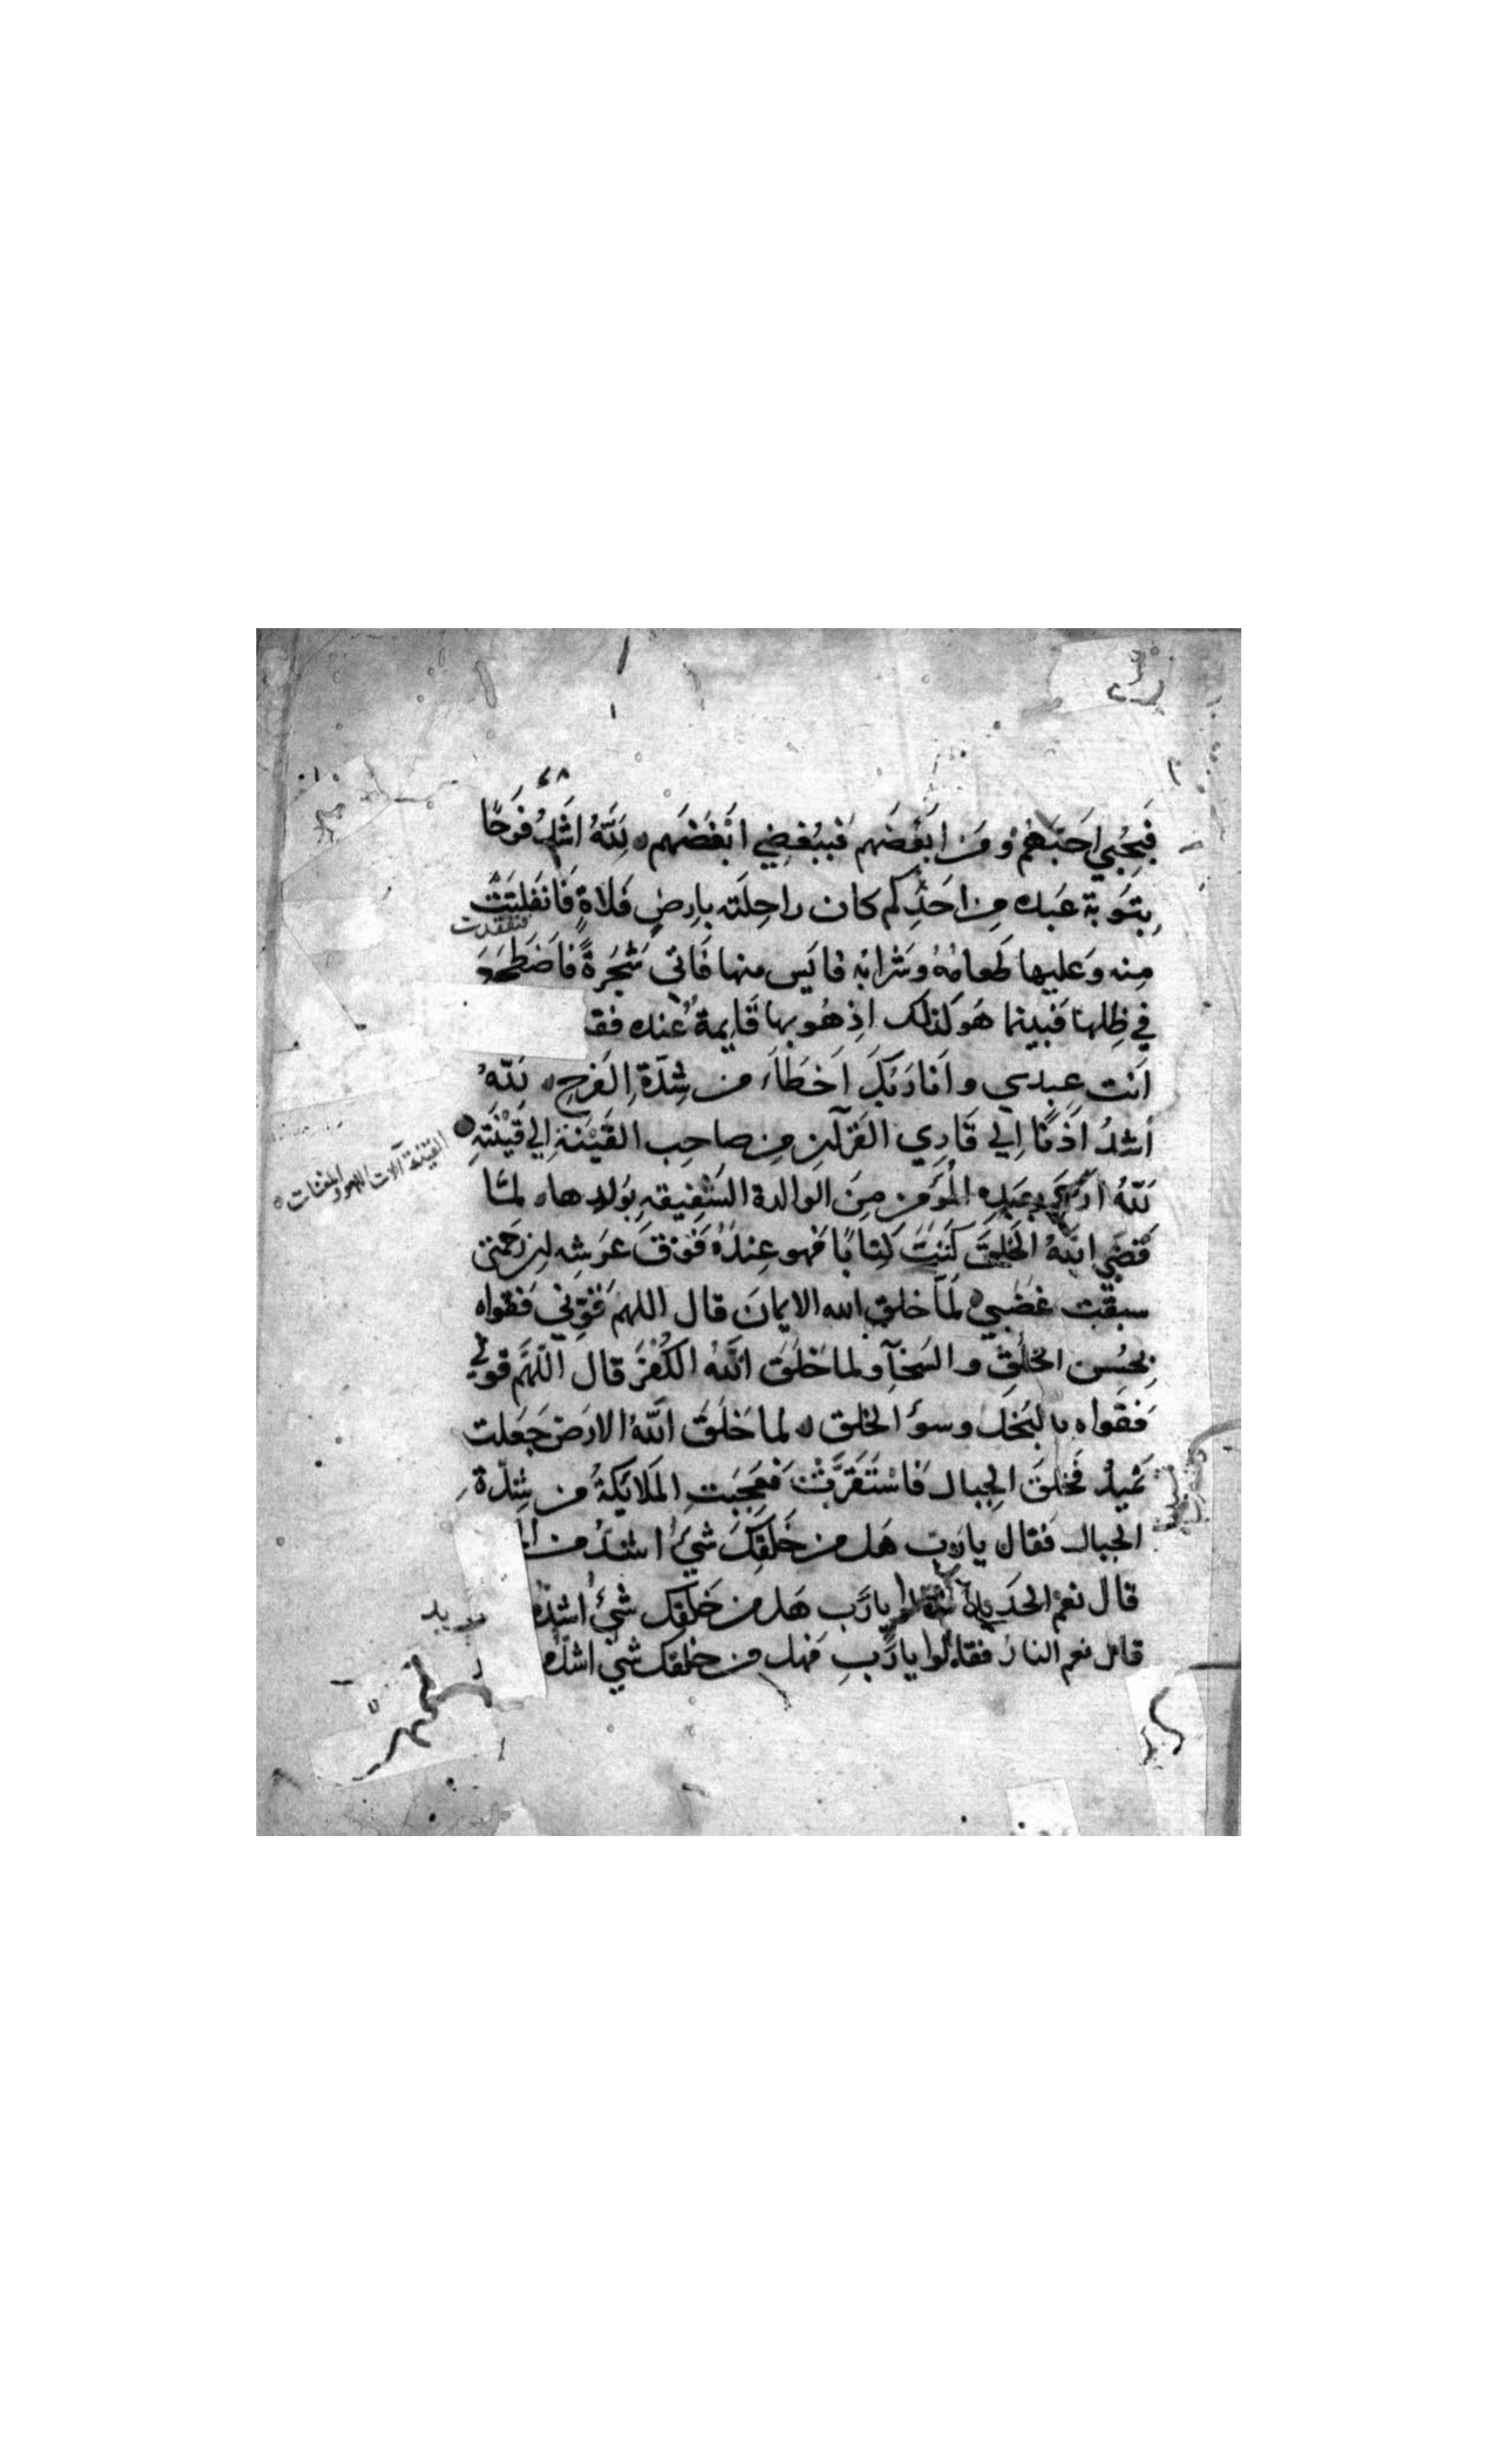 ٦٨
فَبِحُبِّي اَحَبَّهُمْ وَمَنْ اَبْغَضَهم فَبِبُغضِي اَبْغَضَهم ه لَلّٰهُ اَشَدُّ فَرَحًا
بِتَوبَةِ عَبده مِن اَحَدِكم كان راحِلَته بِارضٍ فَلاةٍ فَانفَلتَتْ
مِنه وَعليها طَعامُهُ وشَرابُه فايَس منها فَاتى شَجَرةً فاَضطَجَعَ
في ظِلها فبينما هُوكذلك اِذ هُوبها قَايمةٌ عنده فقـ
اَنت عِبدي واَنا رَبُّكَ اَخطَاَ من شِدَّةِ الفَرحِ ه لَلّٰهُ
اَشدُّ اَذَنًا اِلى قَاري القُرآنِ مِن صاحِب القَيْنَة اِلى قَيْنَتِهِ
القينة آلات اللهو والمغنيات ه
لَلّٰهُ اَرحم بِعَبدِه المُؤمن مِنَ الوالدة الشَفِيقه بِوَلدِها ه لمَّا
قَضَى اللهُ الخَلقَ كَتَبَ كِتابًا فهو عِندَهُ فَوْقَ عَرشِه اِن رَحمَتي
سبقَت غَضَبي ه لمَّا خلق الله الايمانَ قال اللهم قَوِّني فَقواه
بِحُسن الخُلقِ والسَخآ ولما خَلَقَ اللهُ الكُفْرَ قال اللّهم قوني
فَقواه بالبَخَل وسوُ الخلق ه لما خَلَقَ اللّٰهُ الارضَ جَعَلت
تَميدُ فَخلقَ الجِبال فَاسْتَقَرَّتْ فَعَجِبَتِ المَلايكَةُ من شِدَّة
الجبال فقال يا رَب هَل من خَلقِكَ شَيءٌ اشدُّ من الـ
قال نعم الحَديد يا رَب هَل من خَلقِكَ شَيءٌ اشدُّ
قال نعم النارُ فقالوا يا رَّبِ فَهل من خلقك شيٌ اشدُّ